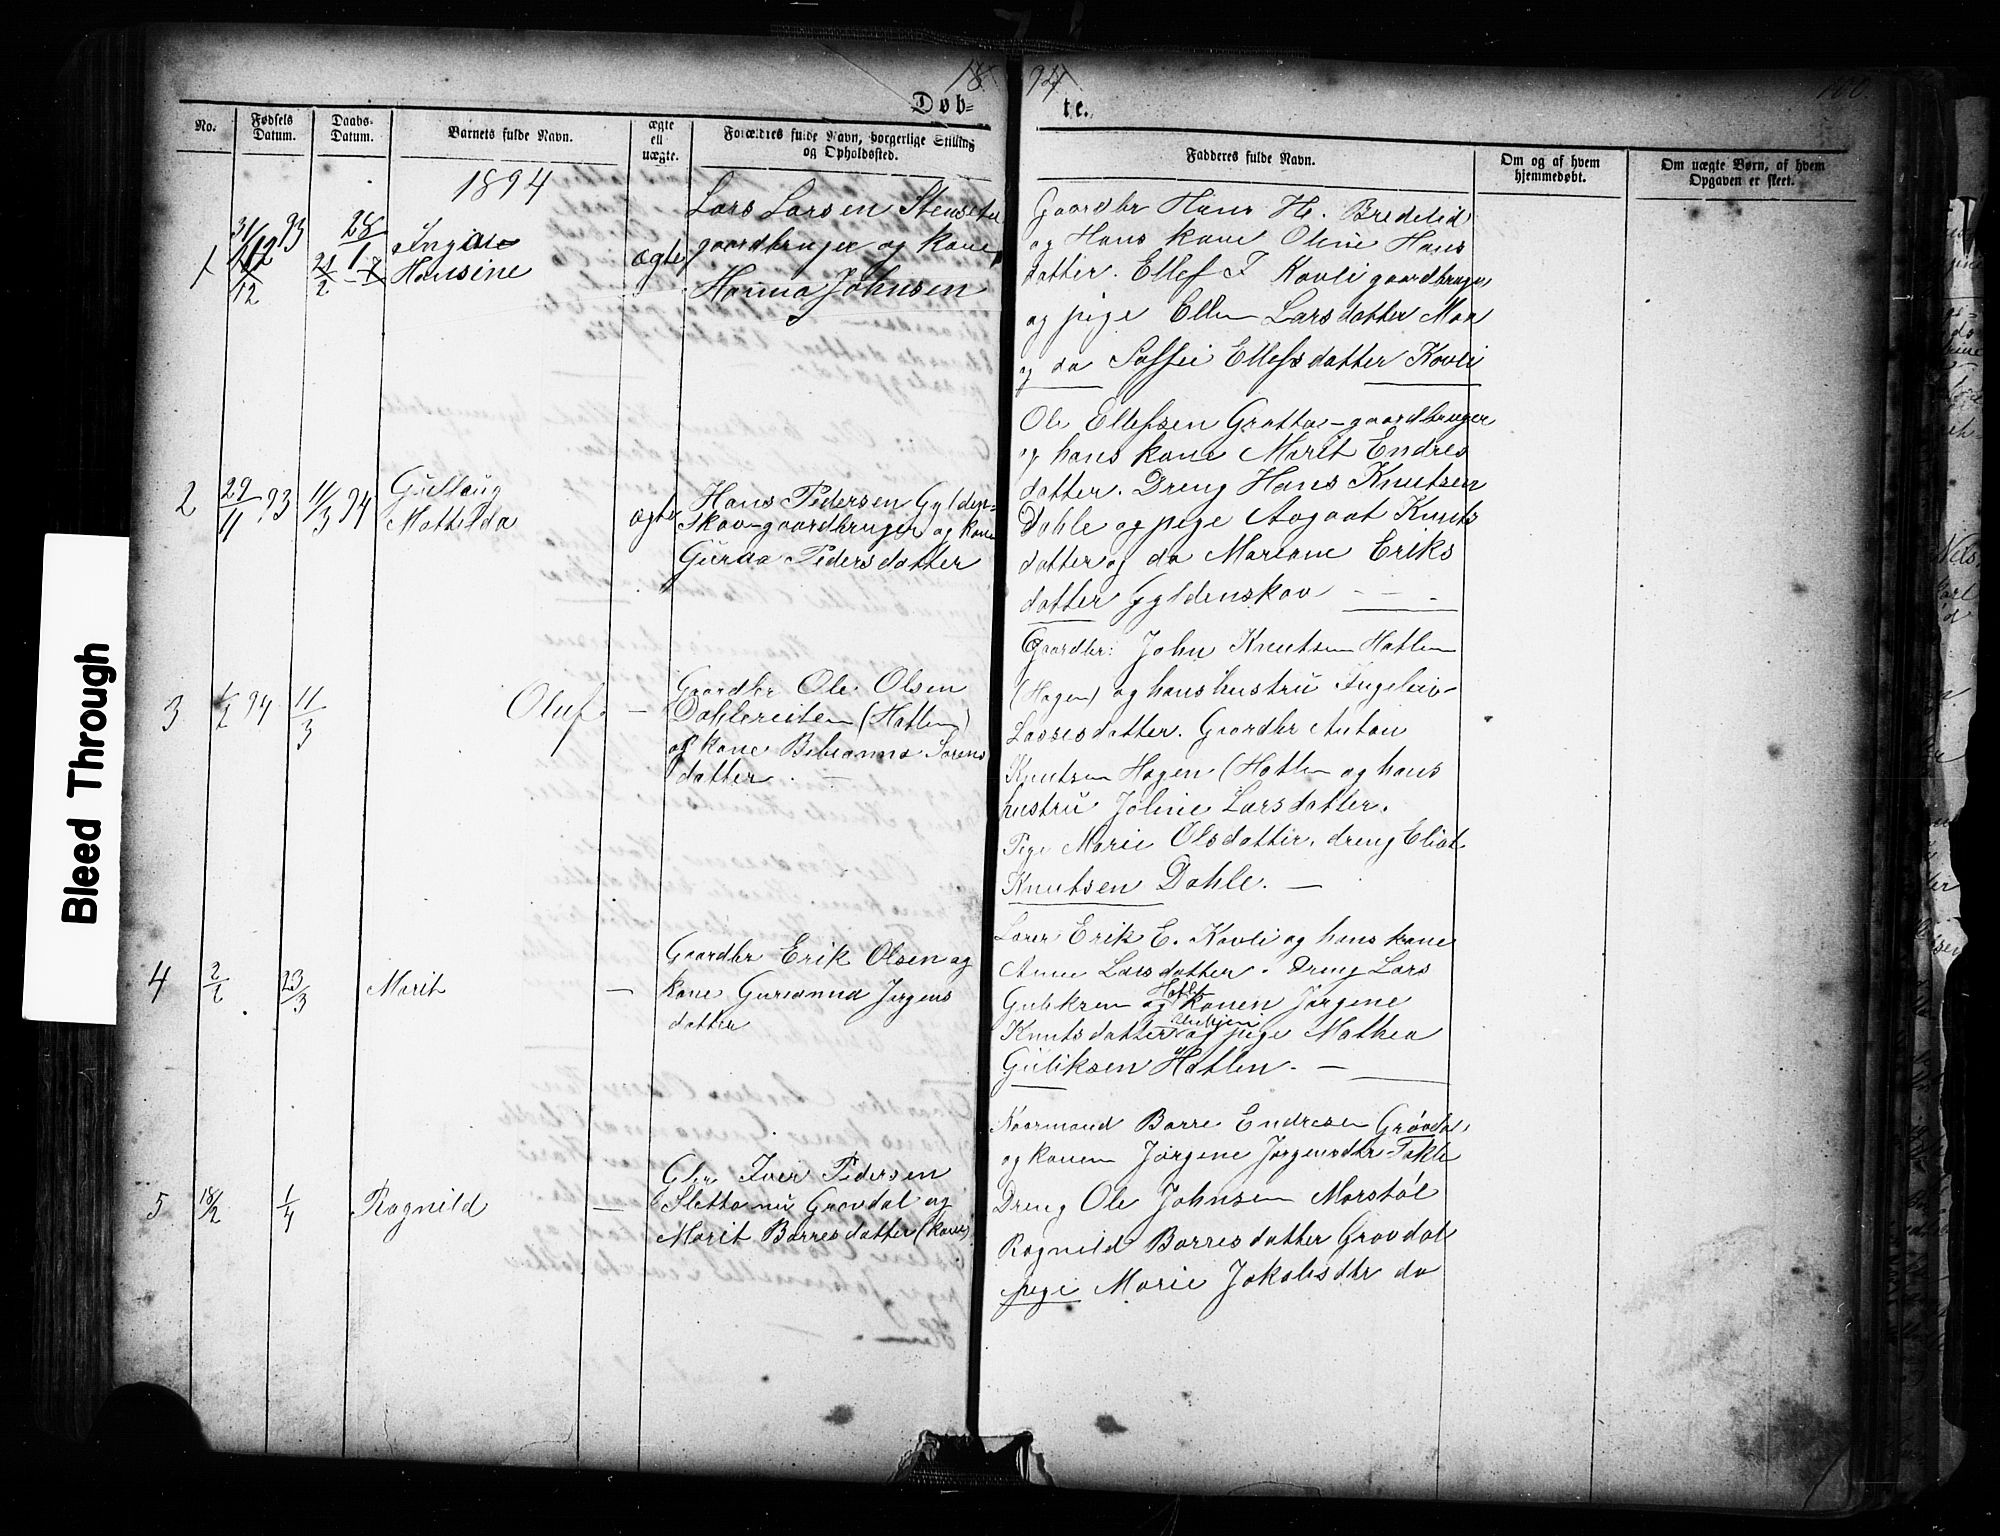 18 94
100
Døb- te.
No.
Fødsels Datum.
Daabs-Datum.
Barnets fulde Navn.
ægte ell uægte.
Forældres fulde Navn, borgerlige Stilling og Opholdssted.
Fadderes fulde Navn.
Om og af hvem hjemmedøbt.
Om uægte Børn, af hvem Opgaven er skeet.
1894
1
31/12 93
28/1
Hansine
ægte
Lars Larsen
gaardbruger og kone
Hanna Johnsen
Gaardbr Hans H. Bredelid
og Hans kone Oline Hans
datter. Ellef T Kavli gaardbruger
og pige Ellen Larsdatter Moa
og do Ellefsdatter Kavli
2
29/11 93
11/3 94
Gullaug
Mathilda
ægte
Hans Pedersen Gylden-
skov-gaardbruger og kone
Gurina Pedersdatter
Ole Ellefsen Grøtta-gaardbruger
og hans kone Marit Endres
datter. Dreng Hans Knutsen
Dahle og pige Aagaat Knuts
datter og do Mariane Eriks
datter Gyldenskov - - -
3
94
11/3
Oluf.
-
Gaardbr Ole Olsen
Dahlereiten (Hatlen)
og kone Bebianna Sørens
datter. -
Gaardbr: John Knutsen Hatlen
(Hagen) og hans hustru Ingeleiv
Lassesdatter. Gaardbr Anton
Knutsen Hagen (Hatlen og hans
hustru Joline Larsdatter.
Pige Marie Olsdatter, dreng Eliot
Knutsen Dahle. -
4
23/3
Marit
-
Gaardbr Erik Olsen og
kone Gurianna Jørgens
datter
Lærer Erik E. Kavli og hans kone
Anne Larsdatter. Dreng Lars
Guliksen Hatle og konen Jørgene
Knutsdatter og pige Mathea
Guliksen Hatlen. -
5
18/2
1/4
Ragnild
-
Gbr Iver Pedersen
Sletta nu Grøvdal og
Marit Barresdatter (kone)
Kaarmand Barre Endresen Grøvdal
og konen Jørgene Jørgensdtr Takle
Dreng Ole Johnsen Marstøl
Ragnild Barresdatter Grøvdal
pige Marie Jakobsdtr do
Bleed Through